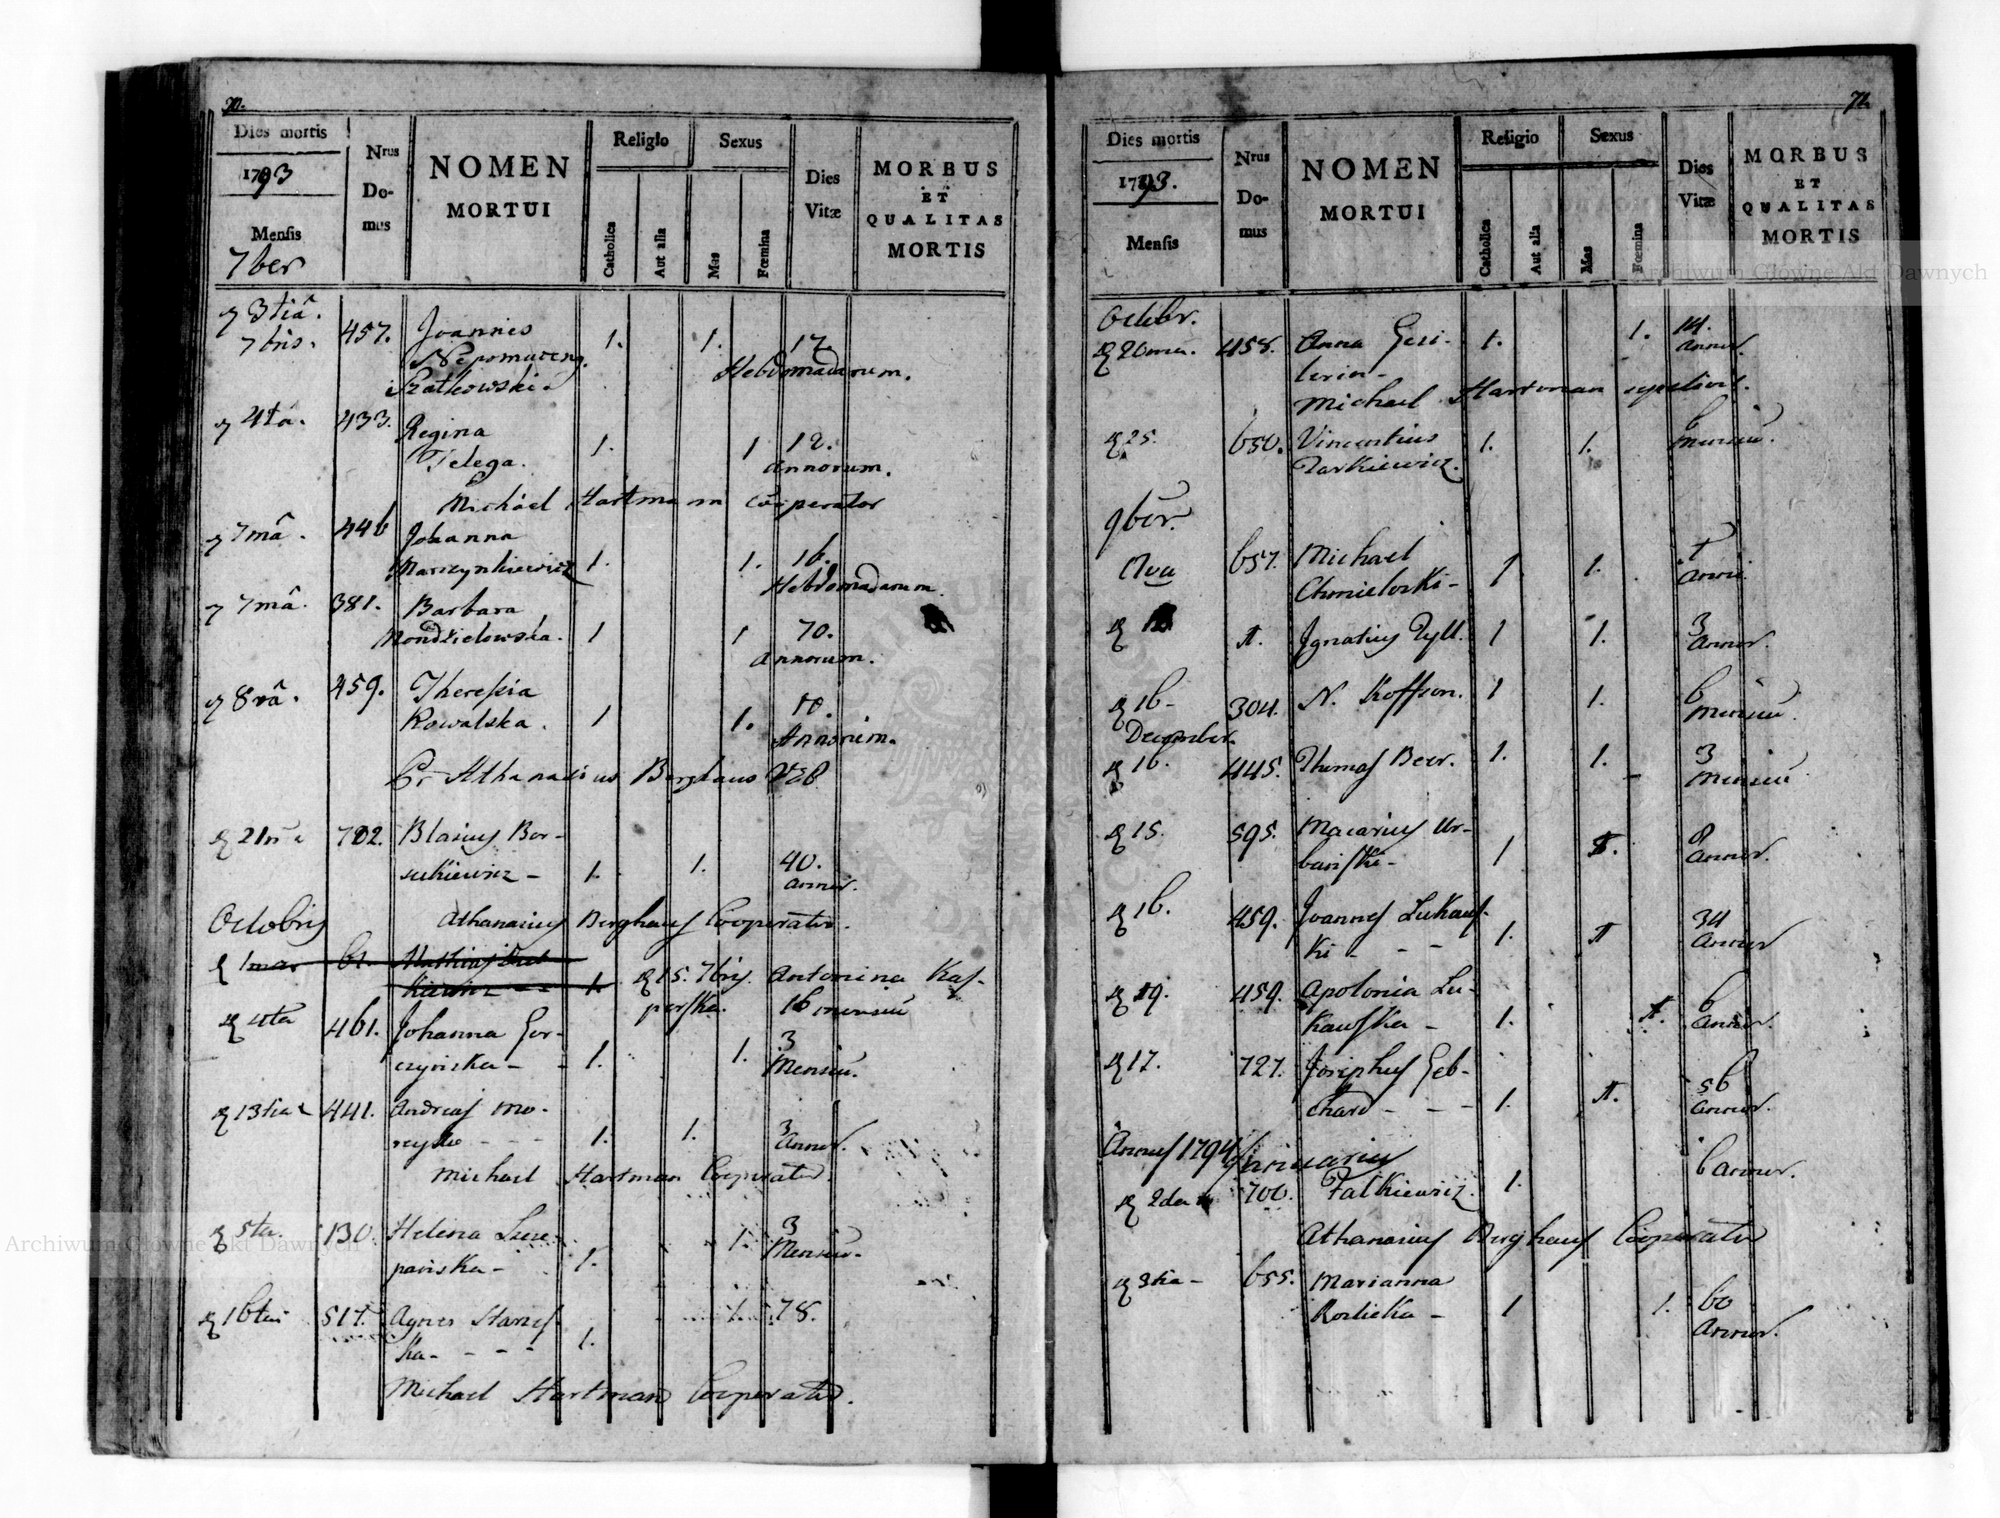 70.
Dies mortis
1793
Mensis
7ber
Nrus
Do-
mus
NOMEN
MORTUI
Religio
Catholica
Aut alia
Sexus
Mas
Fœmina
Dies
Vitæ
MORBUS
ET
QUALITAS
MORTIS
3tiâ.
7bris.
457.
Joannes
Nepomucenq.
Szatkowski.
1.
1.
17.
Hebdomadarum.
4tâ.
433.
Regina
Telega.
1.
1
12.
Annorum.
Michael Hartmann Cooperator
7mâ.
446
Johanna
Marczynkiewicz
1.
1.
16.
Hebdomadarum.
7mâ.
381.
Barbara
Mondzielowska.
1
1
70.
Annorum.
8vâ.
459.
Theresia
Kowalska.
1
1.
10.
Annorum.
Pr Athanasius Berghaus
21ma
702.
Blasius Bor-
sukiewicz -
1.
1.
40.
annor.
Octobris
Athanasius Berghaus Cooperator.
1ma
61.
Mathias
kiewicz - -
1.
15. 7bris. Antonina Kas-
perska. 16 mensiū
4ta
461.
Johanna Gor-
czynska - -
1.
1.
3
Mensiū.
13tia
441.
Andreas Mo-
- - -
1.
1.
3
Annor.
Michael Hartman Cooperator.
5ta.
130
Helena Szcze-
panska -
1.
1.
3
Mensiū.
16ta
517.
Agnes Stanis-
ka - - - -
1.
1.
78.
Michael Hartman Cooperator.
71.
Dies mortis
1793.
Mensis
Nrus
Do-
mus
NOMEN
MORTUI
Religio
Catholica
Aut alia
Sexus
Mas
Fœmina
Dies
Vitæ
MORBUS
ET
QUALITAS
MORTIS
Octobr.
20ma.
458.
Anna
1.
1.
14.
annor.
Michael Hartman
25.
650.
Vincentius
Tarkiewicz.
1.
1.
6
mensiū.
9ber.
657.
Michael
Chmielovski -
1
1.
1
Anni.
Ignatius Tyll.
1
1.
3
Annor.
16 -
304.
N. Koffson.
1
1.
6
Mensiū.
December.
16.
445.
Thomas Beer.
1.
1.
3
Mensiū
15.
595.
Macarius Ur-
banski -
1
1.
8
Annor.
16.
459.
Joannes Lukaws-
ki - - -
1.
1
34
Annor
19.
459.
Apolonia Lu-
kawska -
1.
1.
6
Annor.
17.
727.
Josephus Geb-
hard - - -
1.
1.
56
Annor.
Annus 1794 Januarius
2da
700.
Falkiewicz.
1.
6 annor.
Athanasius Berghaus Cooperator
3tia -
655.
Marianna
Rozlicka -
1
1.
60
Annor.
Archiwum Główne Akt Dawnych
Archiwum Główne Akt Dawnych